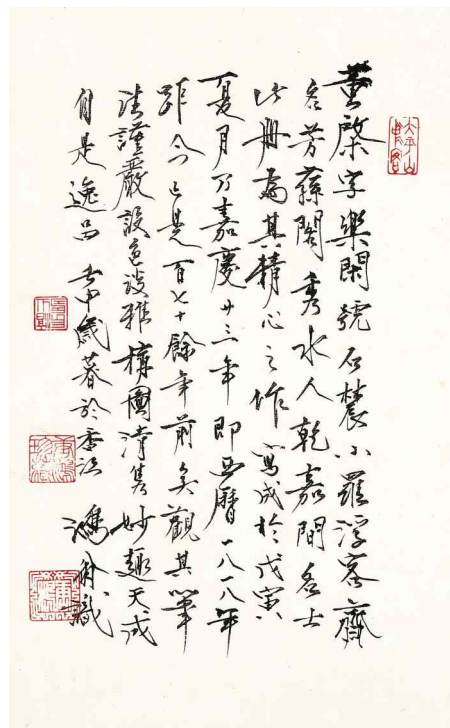 董棨字樂閑號石農小羅浮客齋
名芳蓀閣秀水人乾嘉間名士
此冊為其精心之作寫成於戊寅
夏月乃嘉慶廿三年即西曆一八一八年
距今已是百七十餘年前矣觀其筆
法謹嚴設色淡雅構圖清隽妙趣天成
自是逸品 壬申歲暮於香江 識